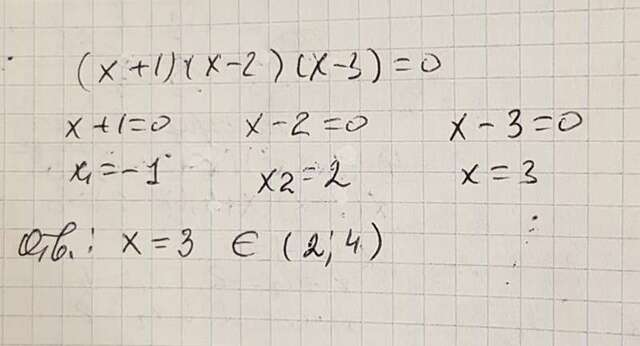 (x+1)(x-2)(x-3)=0
x+1=0 x-2=0 x-3=0
x₁=-1 x2=2 x=3
Отв.: x=3 ∈ (2;4)